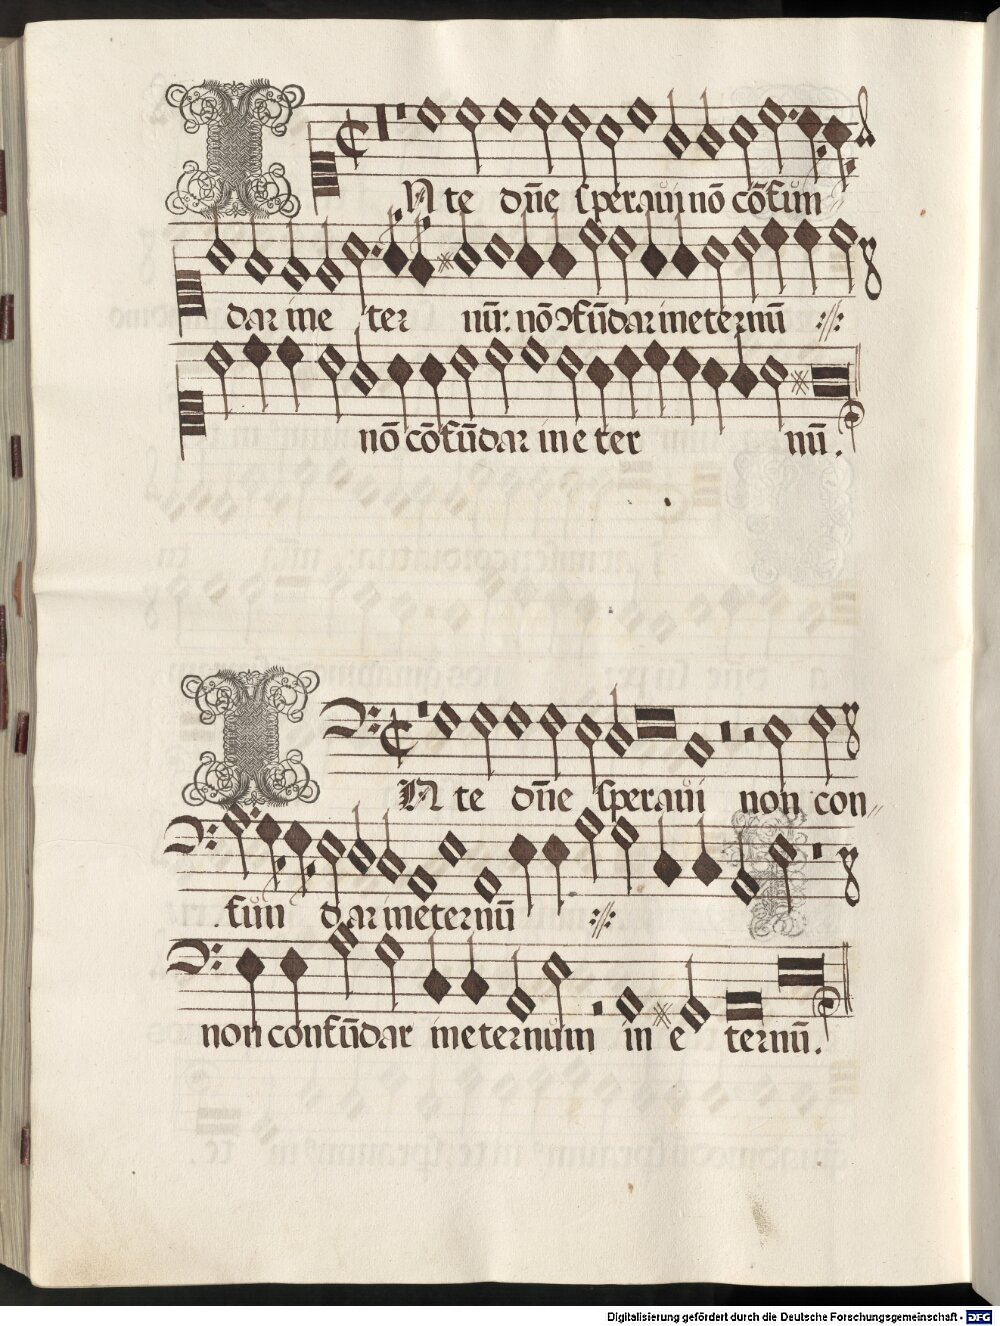 IN te dn̄e speraui nō cōfun
dar in e ter nū: nō ꝯfūdar in eternū ://:
nō cōfūdar in e ter nū.
IN te dn̄e speraui non con//
fun dar in eternū ://:
non confūdar in eternum in e ternū.
Digitalisierung gefördert durch die Deutsche Forschungsgemeinschaft - DFG